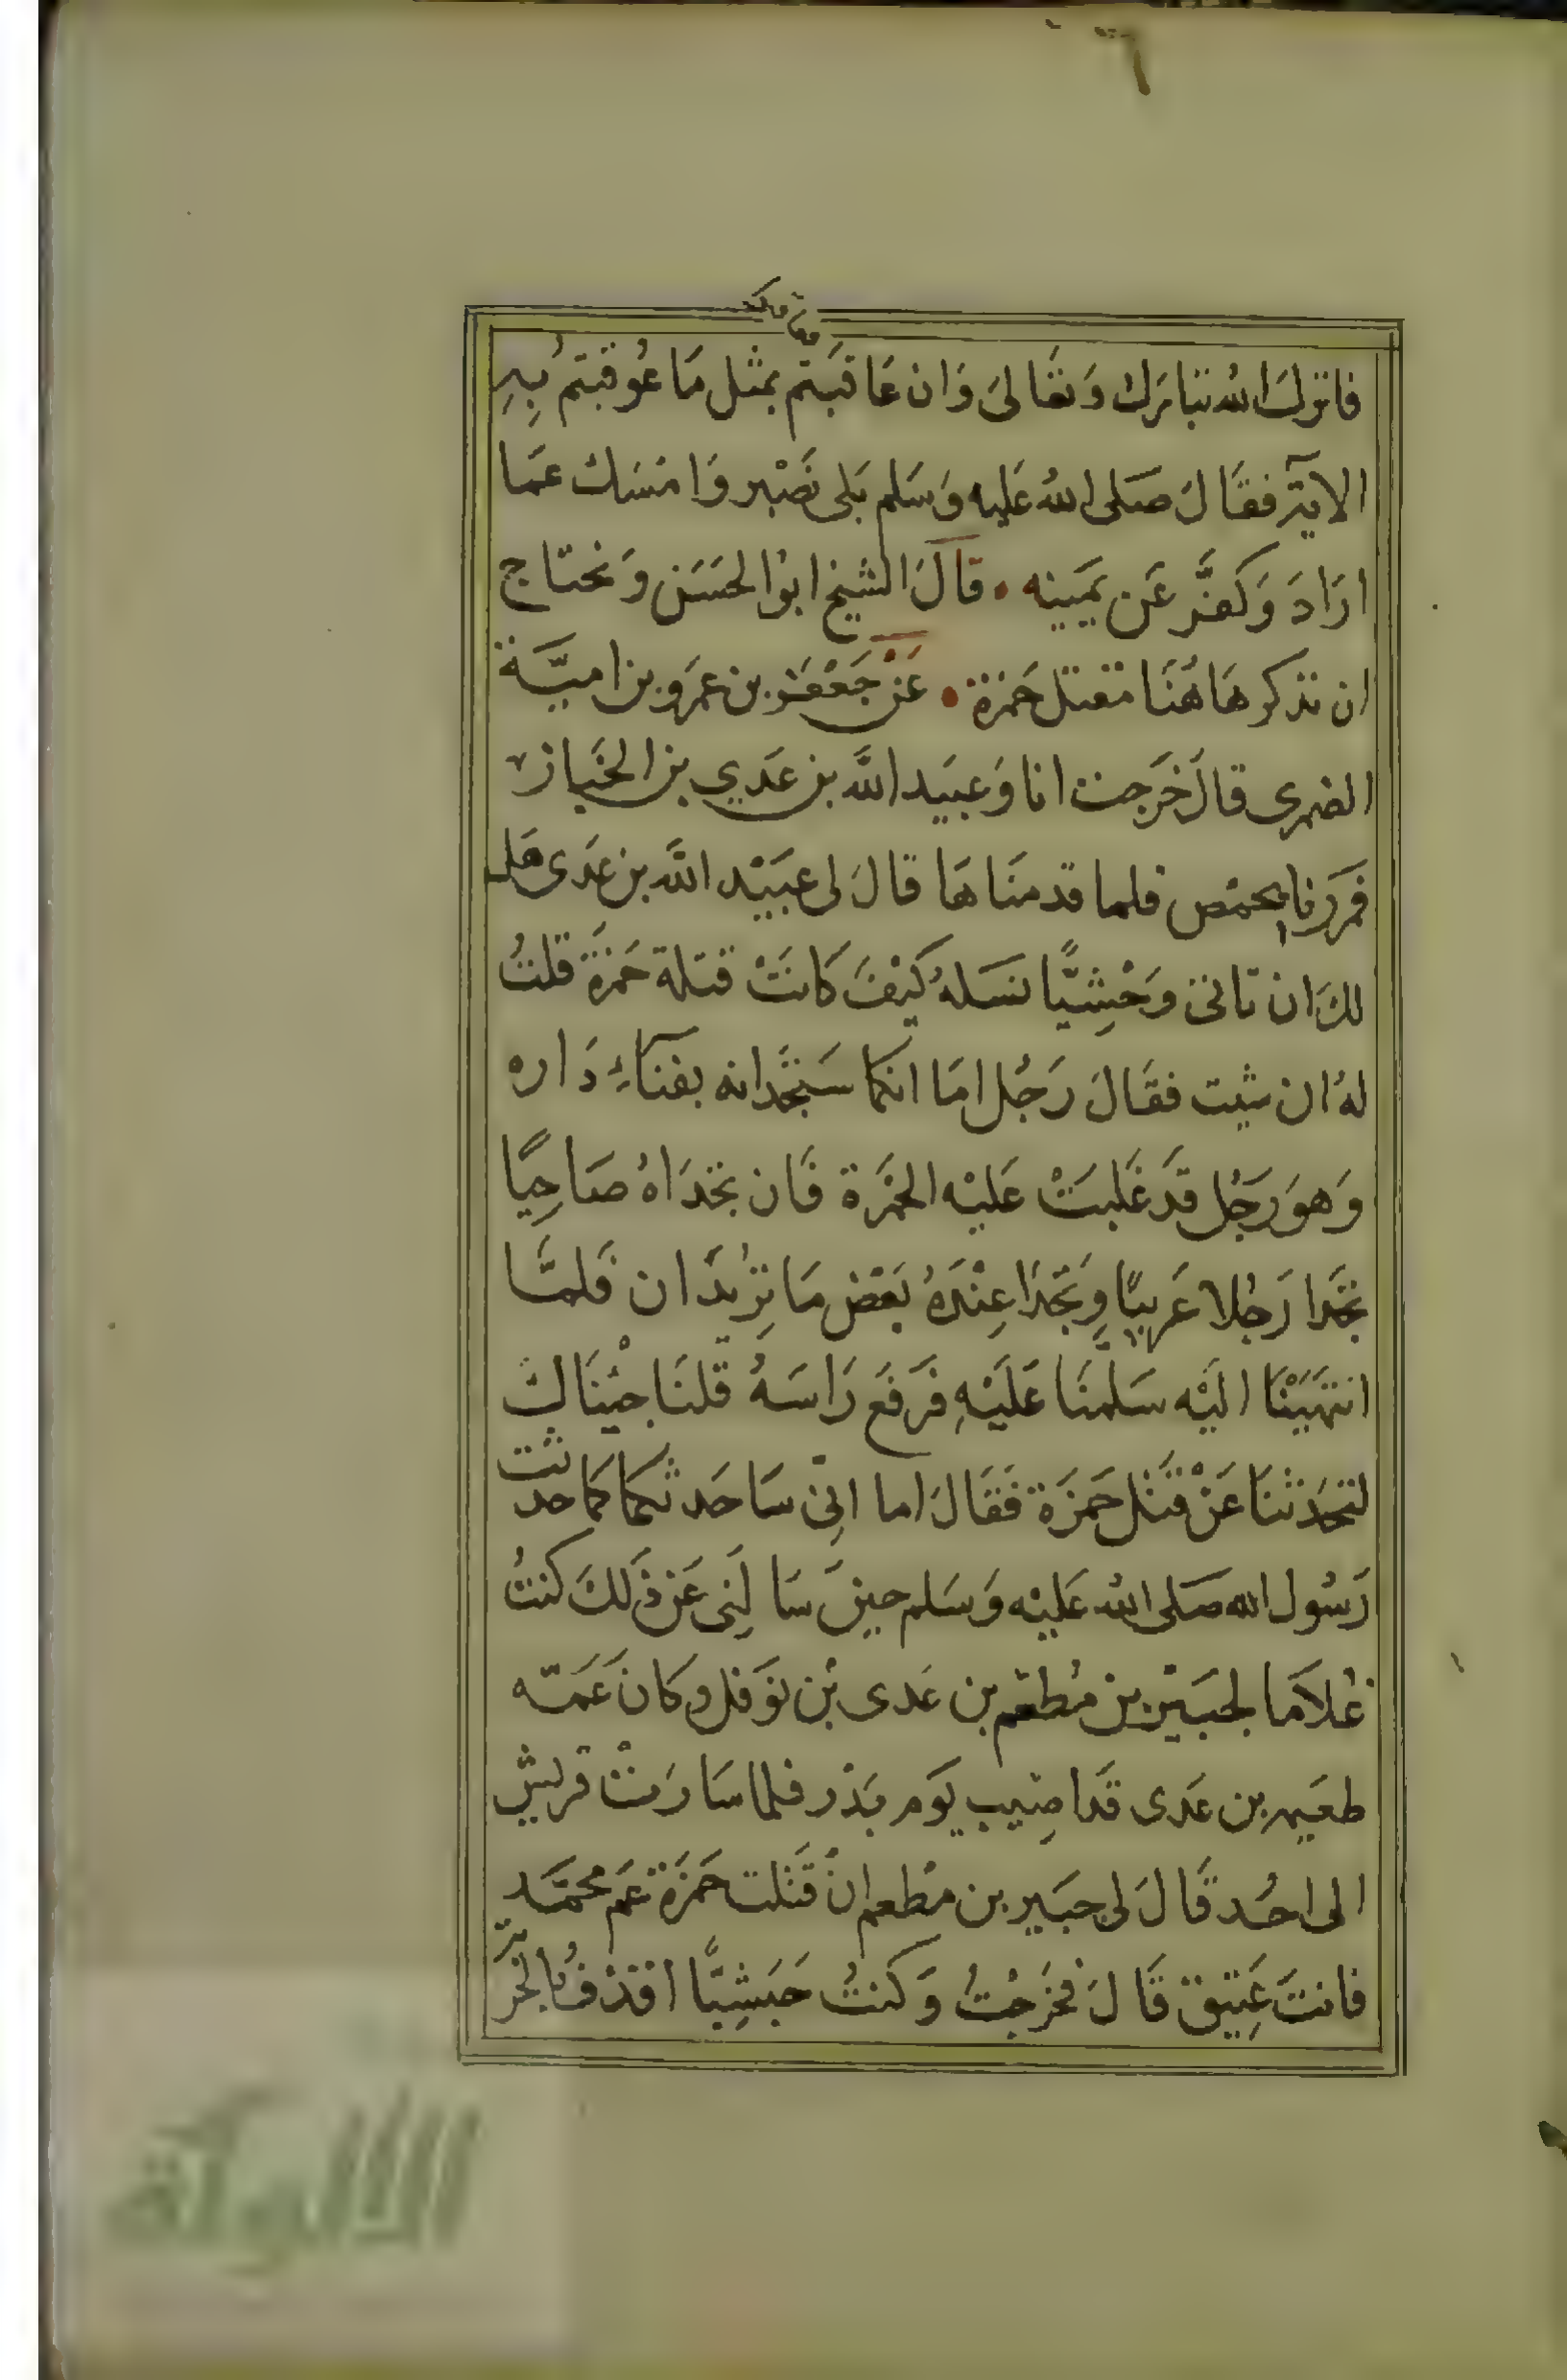 ٦
فعاقبوا
فانزل الله تبارك وتعالى وان عاقبتم بمثل ما عوقبتم به
الاية فقال صلى الله عليه وسلم بلى نصبر وامسك عما
اراد وكفر عن يمينه . قال الشيخ ابو الحسن ونحتاج
ان نذكر هاهنا مقتل حمزة . عن جعفر بن عمرو بن امية
الضمرى قال خرجت انا وعبيد الله بن عدي بن الخيار
فمررنا بحمص فلما قدمناها قال لى عبيد الله بن عدى هل
لك ان تاتى وحشيا نسله كيف كانت قتلة حمزة قلت
له ان شيت فقال رجل اما انكما ستجدانه بفناء داره
وهو رجل قد غلبت عليه الخمرة فان تجداه صاحيا
تجدا رجلا عربيا وتجدا عنده بعض ما تريدان فلما
انتهينا اليه سلمنا عليه فرفع راسه قلنا جيناك
لتحدثنا عن قتل حمزة فقال اما انى ساحدثكما كما حدثت
رسول الله صلى الله عليه وسلم حين سالنى عن ذلك كنت
غلاما لجبير بن مطعم بن عدى بن نوفل وكان عمه
طعيمه بن عدى قد اصيب يوم بدر فلما سارت قريش
الى احد قال لى جبير بن مطعم ان قتلت حمزة عم محمد
فانت عتيق قال فخرجت وكنت حبشيا اقذف بالحربة
الألوكة